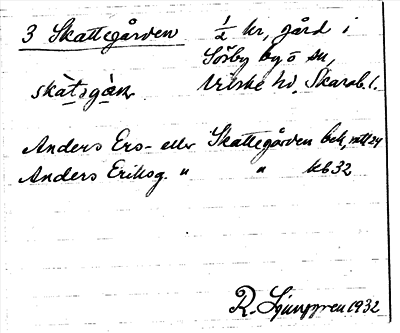 3 Skattegården ½ kr, gård i
Sörby by ö sn,
skàtsgàn Vilske hd, Skarab. l.
Anders Ers- eller Skattegården bek, mtl 24
Anders Eriksg. " " kb 32
R. Ljunggren 1932